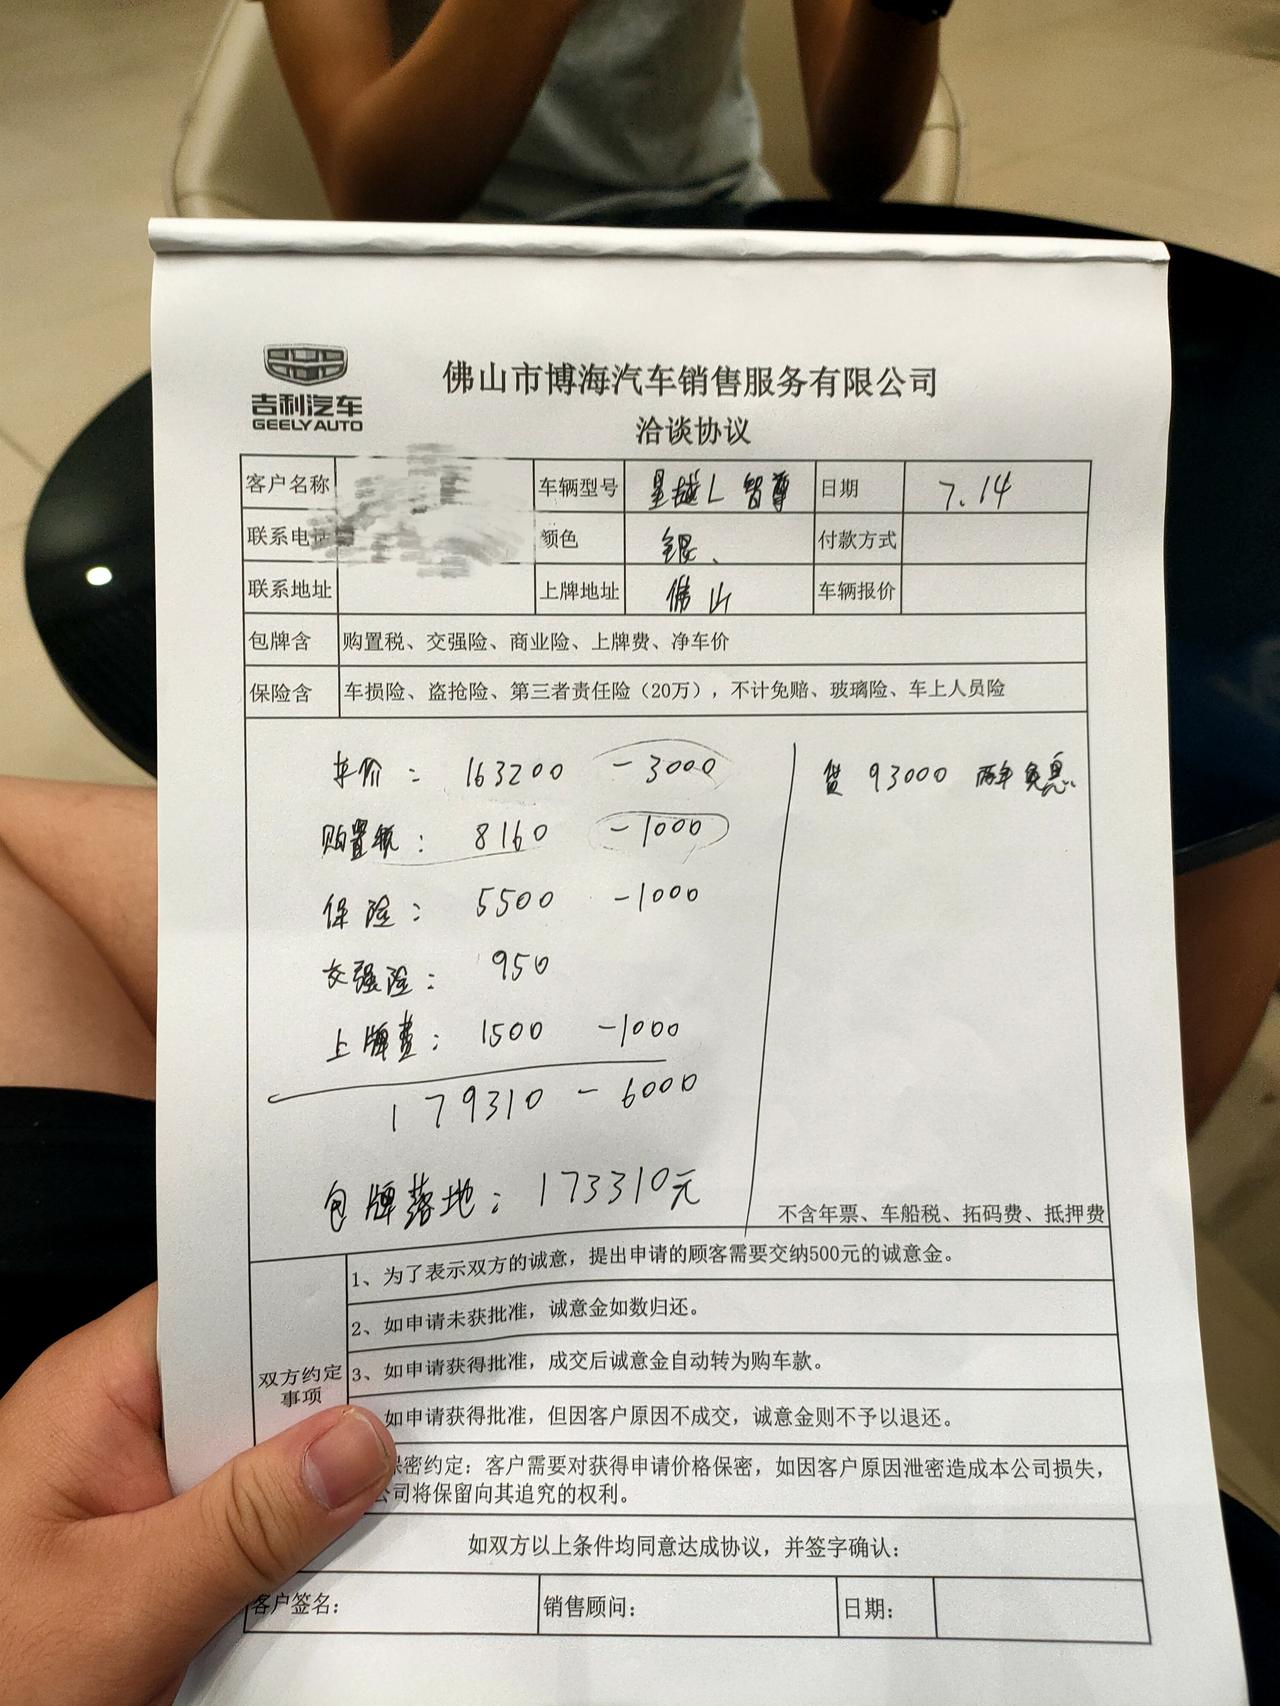 吉利汽车
GEELY AUTO
佛山市博海汽车销售服务有限公司
洽谈协议
客户名称 车辆型号 星越L 智尊 日期 7.14
联系电话 颜色 银、 付款方式
联系地址 上牌地址 佛山 车辆报价
包牌含 购置税、交强险、商业险、上牌费、净车价
保险含 车损险、盗抢险、第三者责任险（20万），不计免赔、玻璃险、车上人员险
车价： 163200 -3000 贷 93000 两年免息
购置税： 8160 -1000
保险： 5500 -1000
交强险： 950
上牌费： 1500 -1000
179310 - 6000
包牌落地： 173310元
不含年票、车船税、拓码费、抵押费
双方约定事项
1、为了表示双方的诚意，提出申请的顾客需要交纳500元的诚意金。
2、如申请未获批准，诚意金如数归还。
3、如申请获得批准，成交后诚意金自动转为购车款。
如申请获得批准，但因客户原因不成交，诚意金则不予以退还。
保密约定：客户需要对获得申请价格保密，如因客户原因泄密造成本公司损失，
公司将保留向其追究的权利。
如双方以上条件均同意达成协议，并签字确认：
客户签名： 销售顾问： 日期：